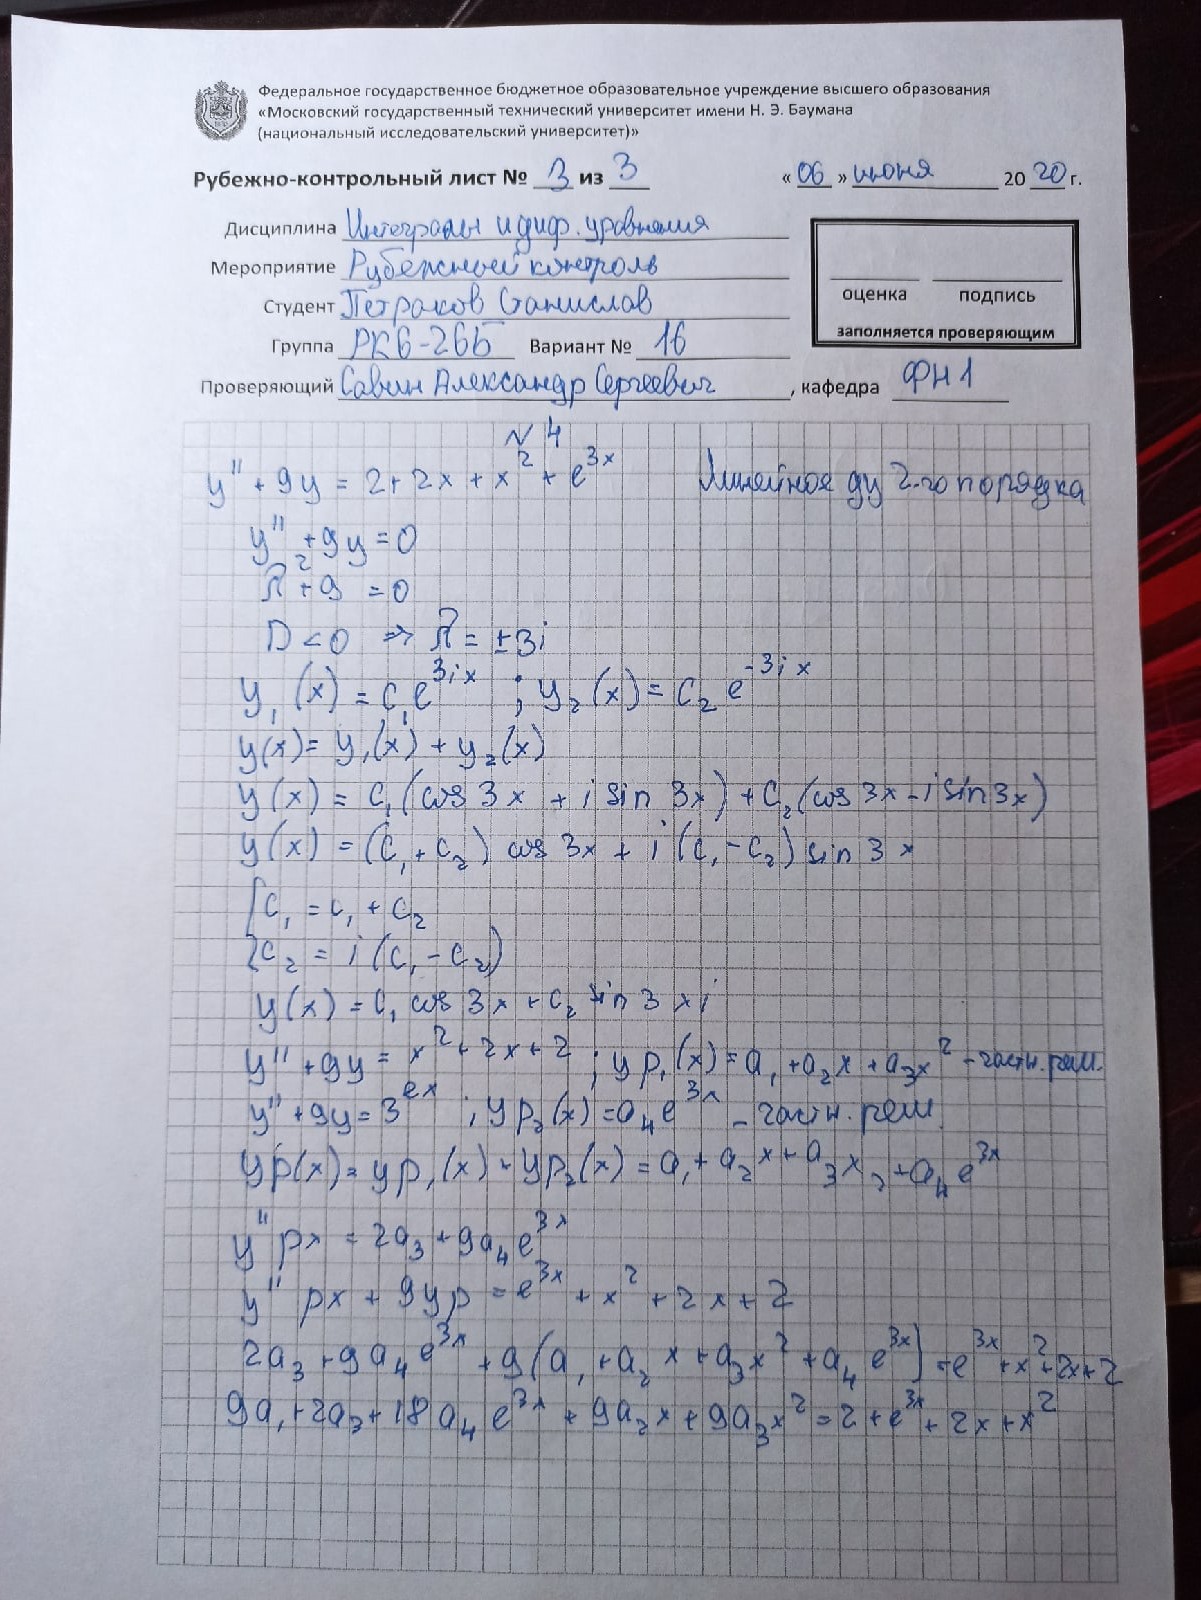 Федеральное государственное бюджетное образовательное учреждение высшего образования
«Московский государственный технический университет имени Н. Э. Баумана
(национальный исследовательский университет)»
Рубежно-контрольный лист № 3 из 3 « 06 » июня 20 20 г.
Дисциплина Интегралы и диф. уровнения
Мероприятие Рубежный контроль
Студент Петраков Станислав
Группа РК6-26Б Вариант № 16
Проверяющий Савин Александр Сергеевич, кафедра ФН1
оценка подпись
заполняется проверяющим
№ 4
y'' + 9y = 2 + 2x + x² + e^{3x} Линейное ду 2-го порядка
y'' + 9y = 0
λ² + 9 = 0
D < 0 => λ = ±3i
y₁(x) = c₁e^{3ix} ; y₂(x) = c₂e^{-3ix}
y(x) = y₁(x) + y₂(x)
y(x) = c₁(cos 3x + i sin 3x) + c₂(cos 3x - i sin 3x)
y(x) = (c₁ + c₂) cos 3x + i(c₁ - c₂) sin 3x
{ c₁ = c₁ + c₂
c₂ = i(c₁ - c₂)
y(x) = c₁ cos 3x + c₂ sin 3xi
y'' + 9y = x² + 2x + 2 ; yp₁(x) = a₁ + a₂x + a₃x² - частн. реш.
y'' + 9y = 3^{ex} ; yp₂(x) = a₄e^{3x} - частн. реш.
yp(x) = yp₁(x) + yp₂(x) = a₁ + a₂x + a₃x₂ + a₄e^{3x}
y''px = 2a₃ + 9a₄e^{3x}
y''px + 9yp = e^{3x} + x² + 2x + 2
2a₃ + 9a₄e^{3x} + 9(a₁ + a₂x + a₃x² + a₄e^{3x}) = e^{3x} + x² + 2x + 2
9a₁ + 2a₃ + 18a₄e^{3x} + 9a₂x + 9a₃x² = 2 + e^{3x} + 2x + x²